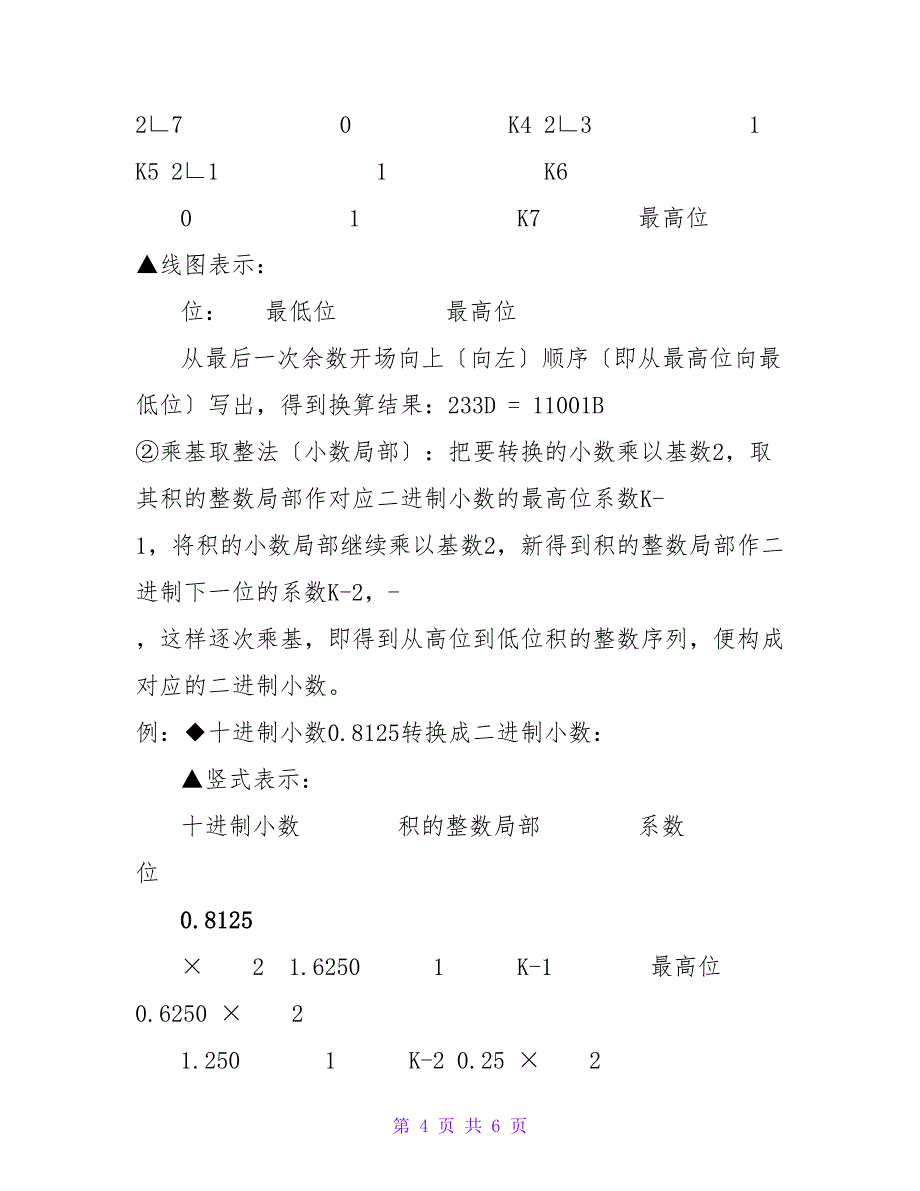 2∟7 0 K4 2∟3 1
K5 2∟1 1 K6
0 1 K7 最高位
▲线图表示：
位： 最低位 最高位
从最后一次余数开场向上〔向左〕顺序〔即从最高位向最
低位〕写出，得到换算结果：233D = 11001B
②乘基取整法〔小数局部〕：把要转换的小数乘以基数2，取
其积的整数局部作对应二进制小数的最高位系数K-
1，将积的小数局部继续乘以基数2，新得到积的整数局部作二
进制下一位的系数K-2，-
，这样逐次乘基，即得到从高位到低位积的整数序列，便构成
对应的二进制小数。
例：◆十进制小数0.8125转换成二进制小数：
▲竖式表示：
十进制小数 积的整数局部 系数
位
0.8125
× 2 1.6250 1 K-1 最高位
0.6250 × 2
1.250 1 K-2 0.25 × 2
第 4 页 共 6 页